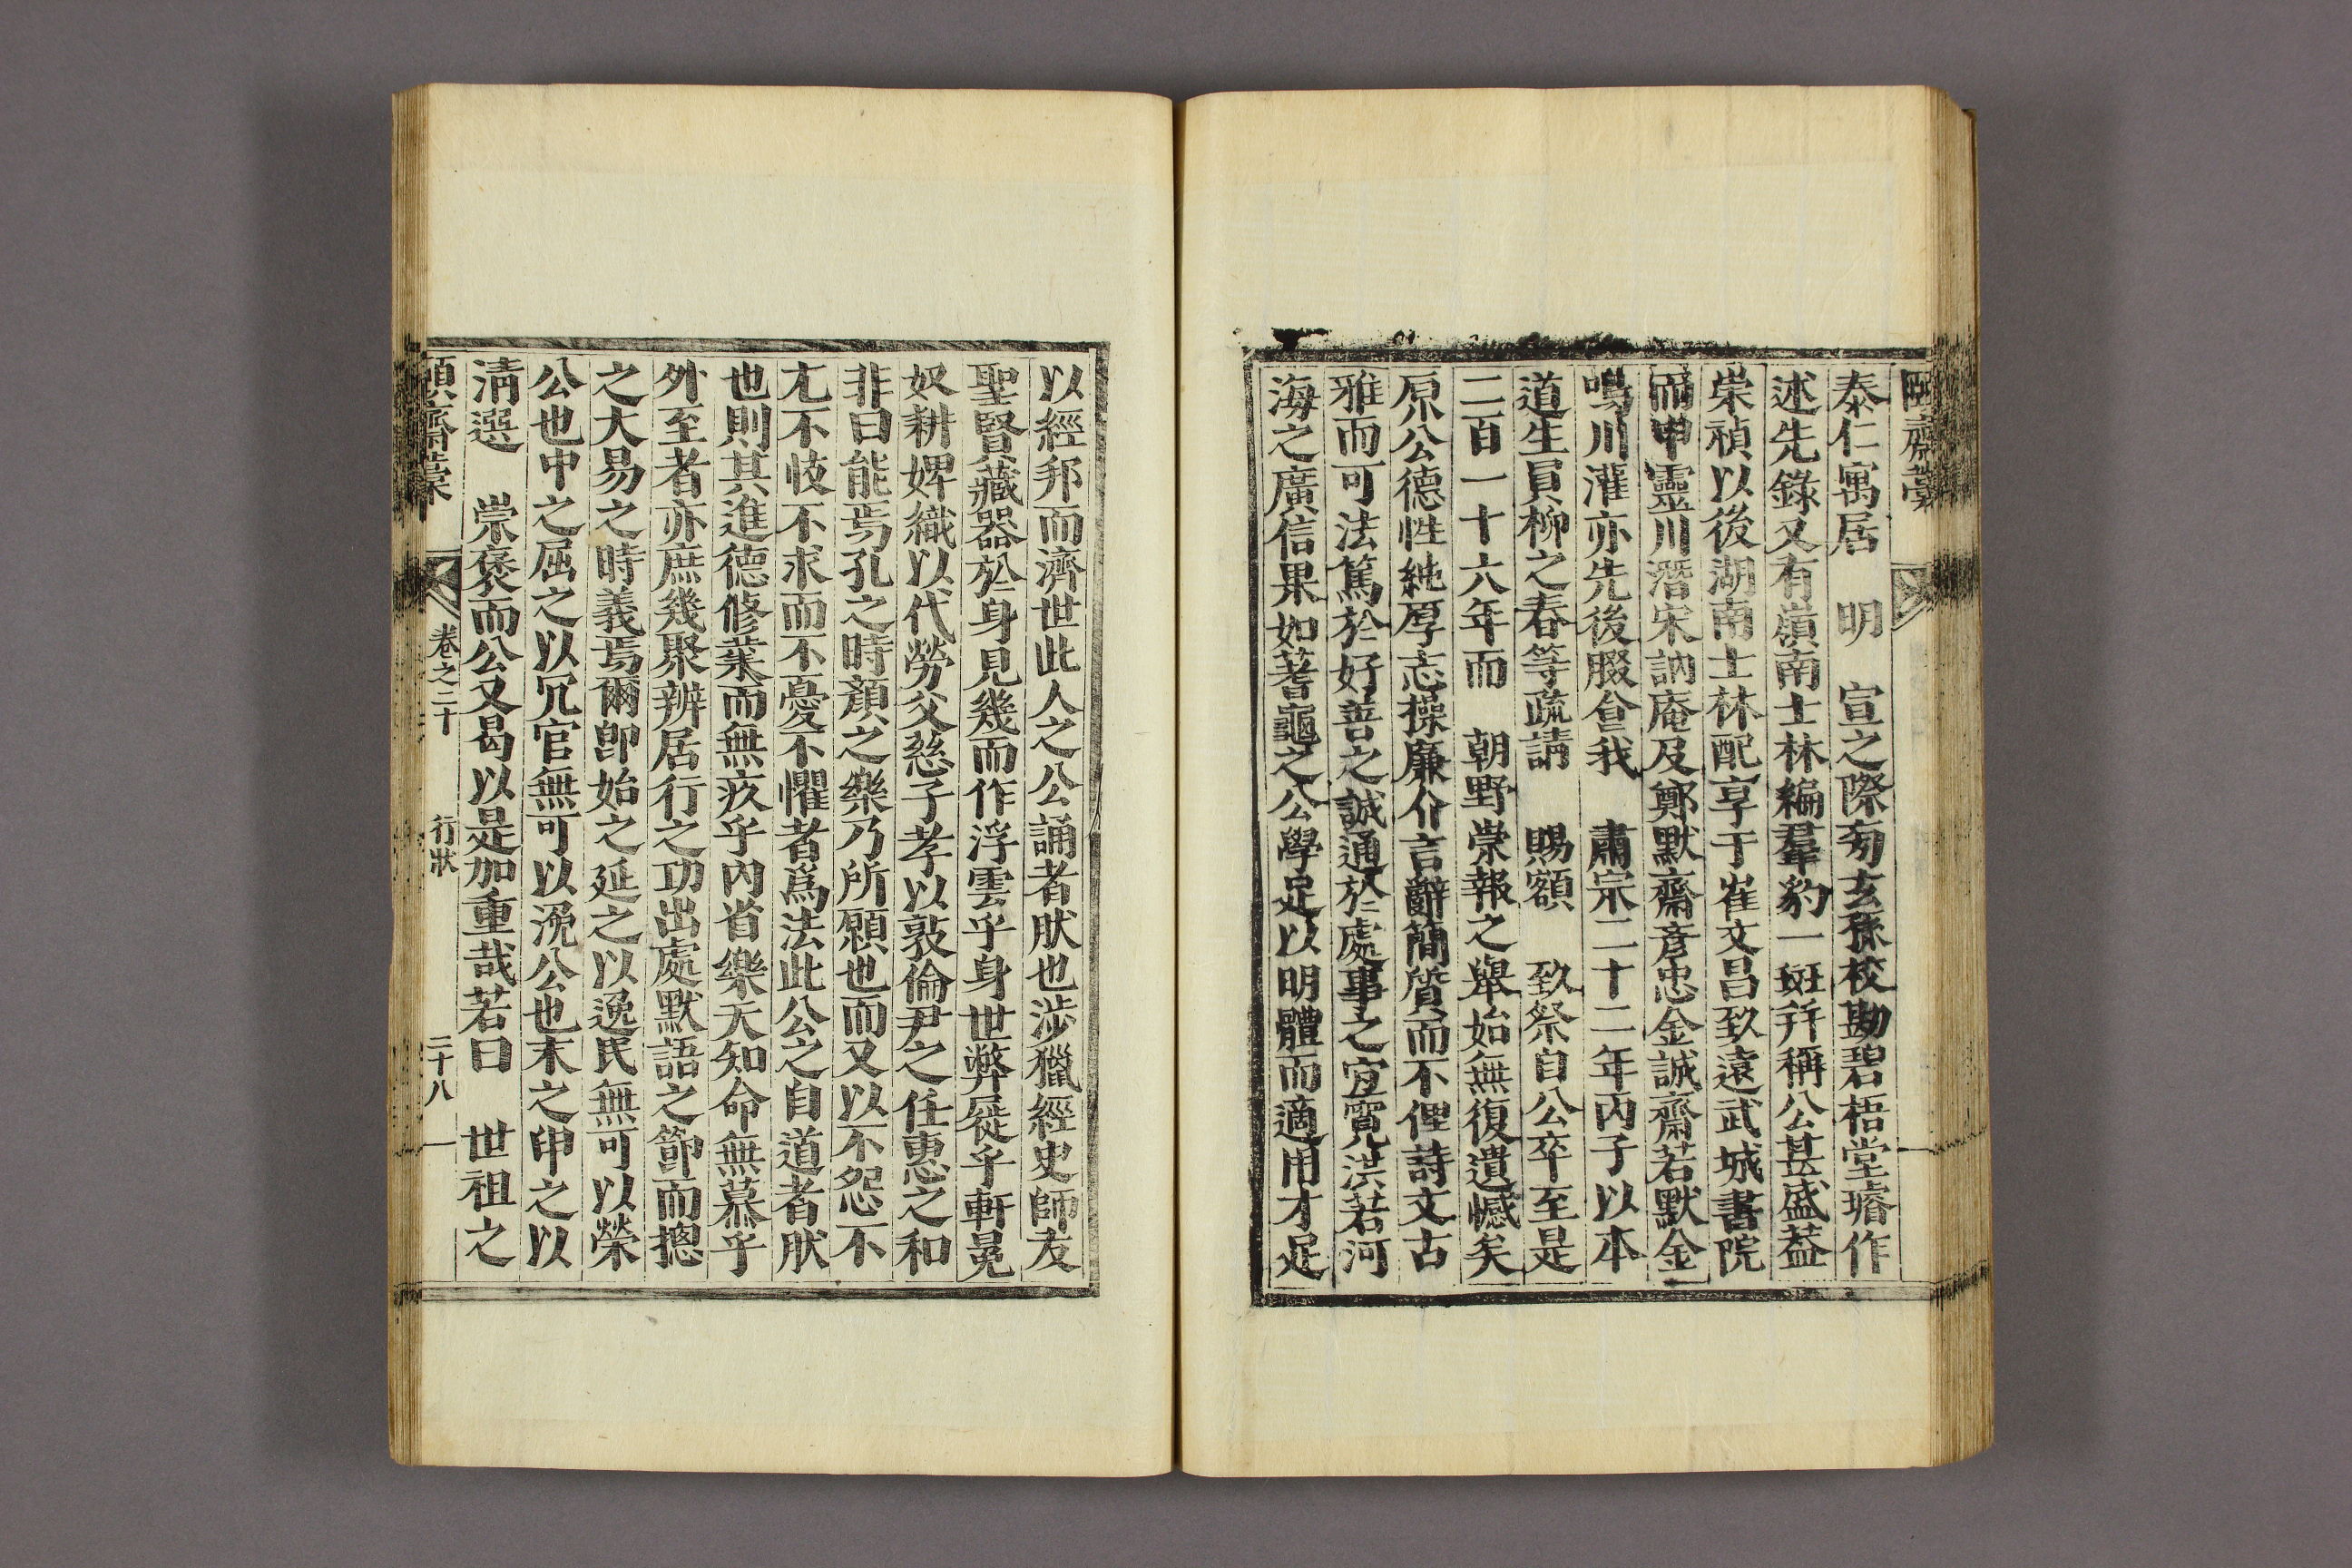 頤齋藁
泰仁寓居　明　宣之際有玄孫校勘碧梧堂璿作
述先錄又有嶺南士林編羣豹一斑幷稱公甚盛葢
崇禎以後湖南士林配享于崔文昌致遠武城書院
而申靈川潛宋訥庵及鄭默齋彦忠金誠齋若默金
鳴川灌亦先後腏會我　肅宗二十二年丙子以本
道生員柳之春等疏請　賜額　致祭自公卒至是
二百一十六年而　朝野崇報之擧始無復遺憾矣
原公德性純厚志操廉介言辭簡質而不俚詩文古
雅而可法篤於好善之誠通於處事之宜寬洪若河
海之廣信果如蓍龜之公學足以明體而適用才足
以經邦而濟世此人之公誦者肰也涉獵經史師友
聖賢藏器於身見幾而作浮雲乎身世弊屣乎軒冕
奴耕婢織以代勞父慈子孝以敦倫尹之任惠之和
非曰能焉孔之時顏之樂乃所願也而又以不怨不
尤不忮不求而不憂不懼者爲法此公之自道者肰
也則其進德修業而無疚乎內省樂天知命無慕乎
外至者亦庶幾聚辨居行之功出處默語之節而摠
之大易之時義焉爾卽始之延之以逸民無可以榮
公也中之屈之以冗官無可以浼公也末之申之以
淸選　崇褒而公又曷以是加重哉若曰　世祖之
頤齋藁　卷之二十　行狀　二十八